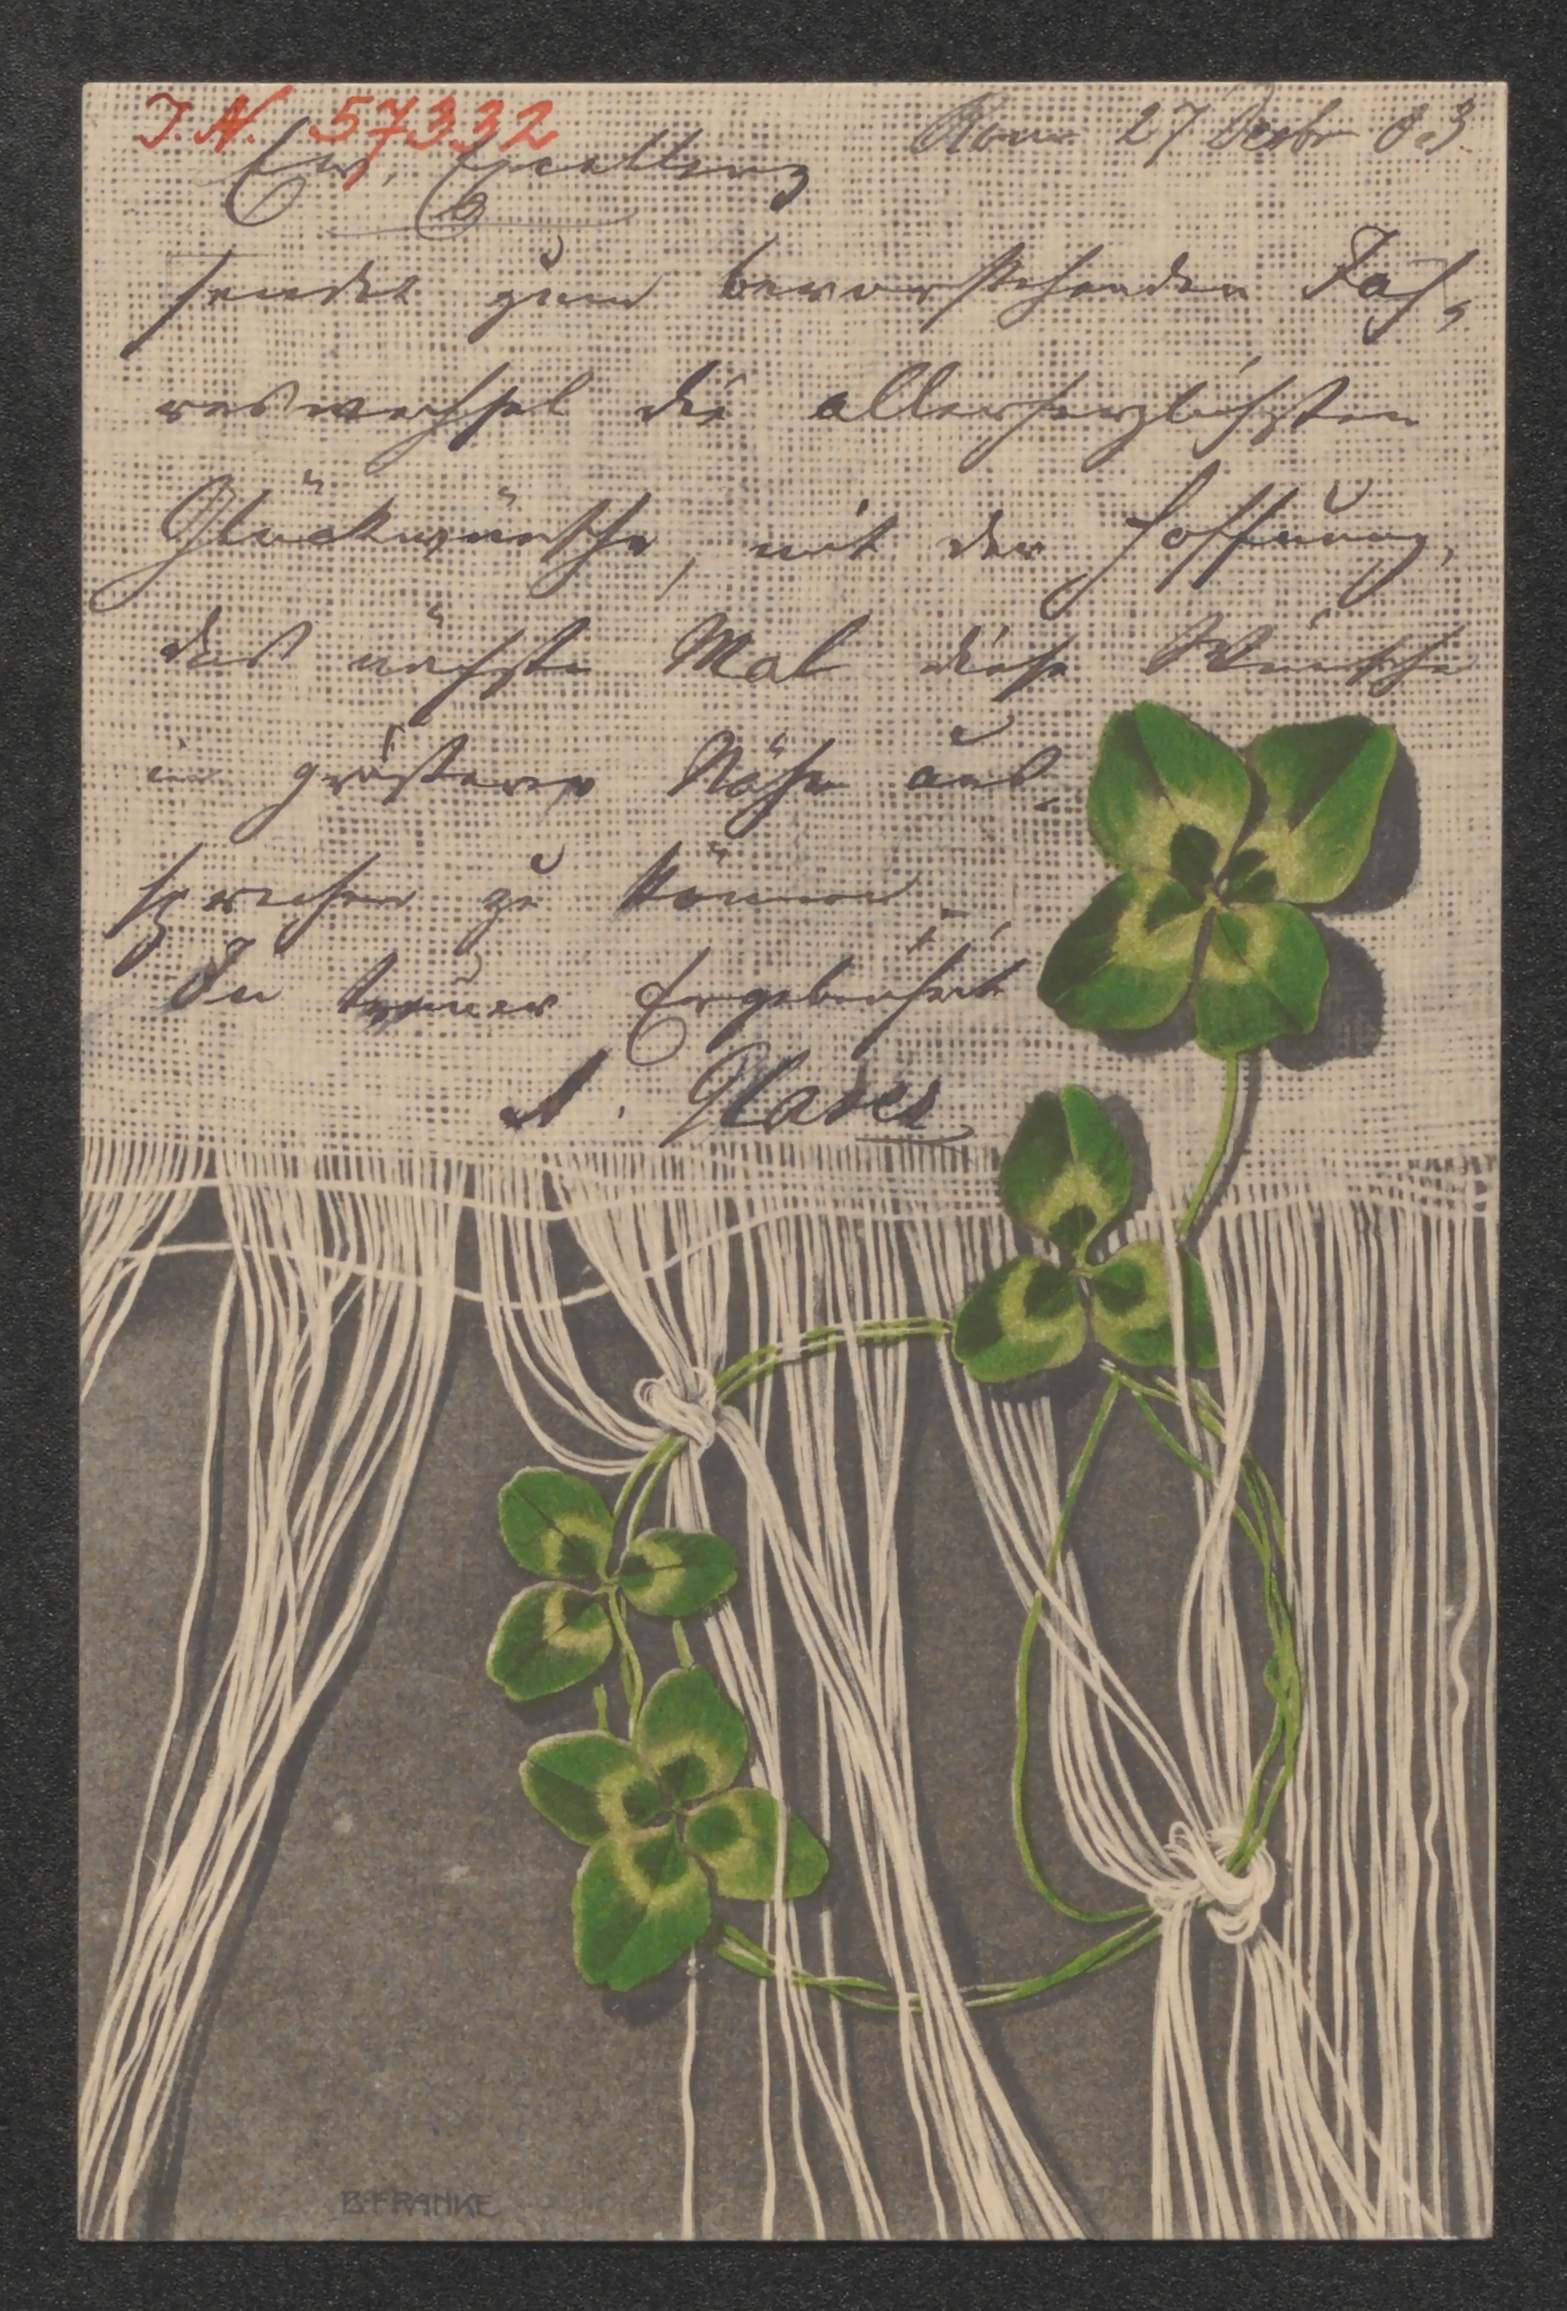 I. N. 57332
Rom 27 Dezbr 03.
Ew. Excellenz
sendet zum bevorstehenden Jah-
reswechsel die allerherzlichsten
Glückwünsche, mit der Hoffnung,
das nächste Mal diese Wünsche
in größerer Nähe aus-
sprechen zu können.
In treuer Ergebenheit
A.
B. FRANKE